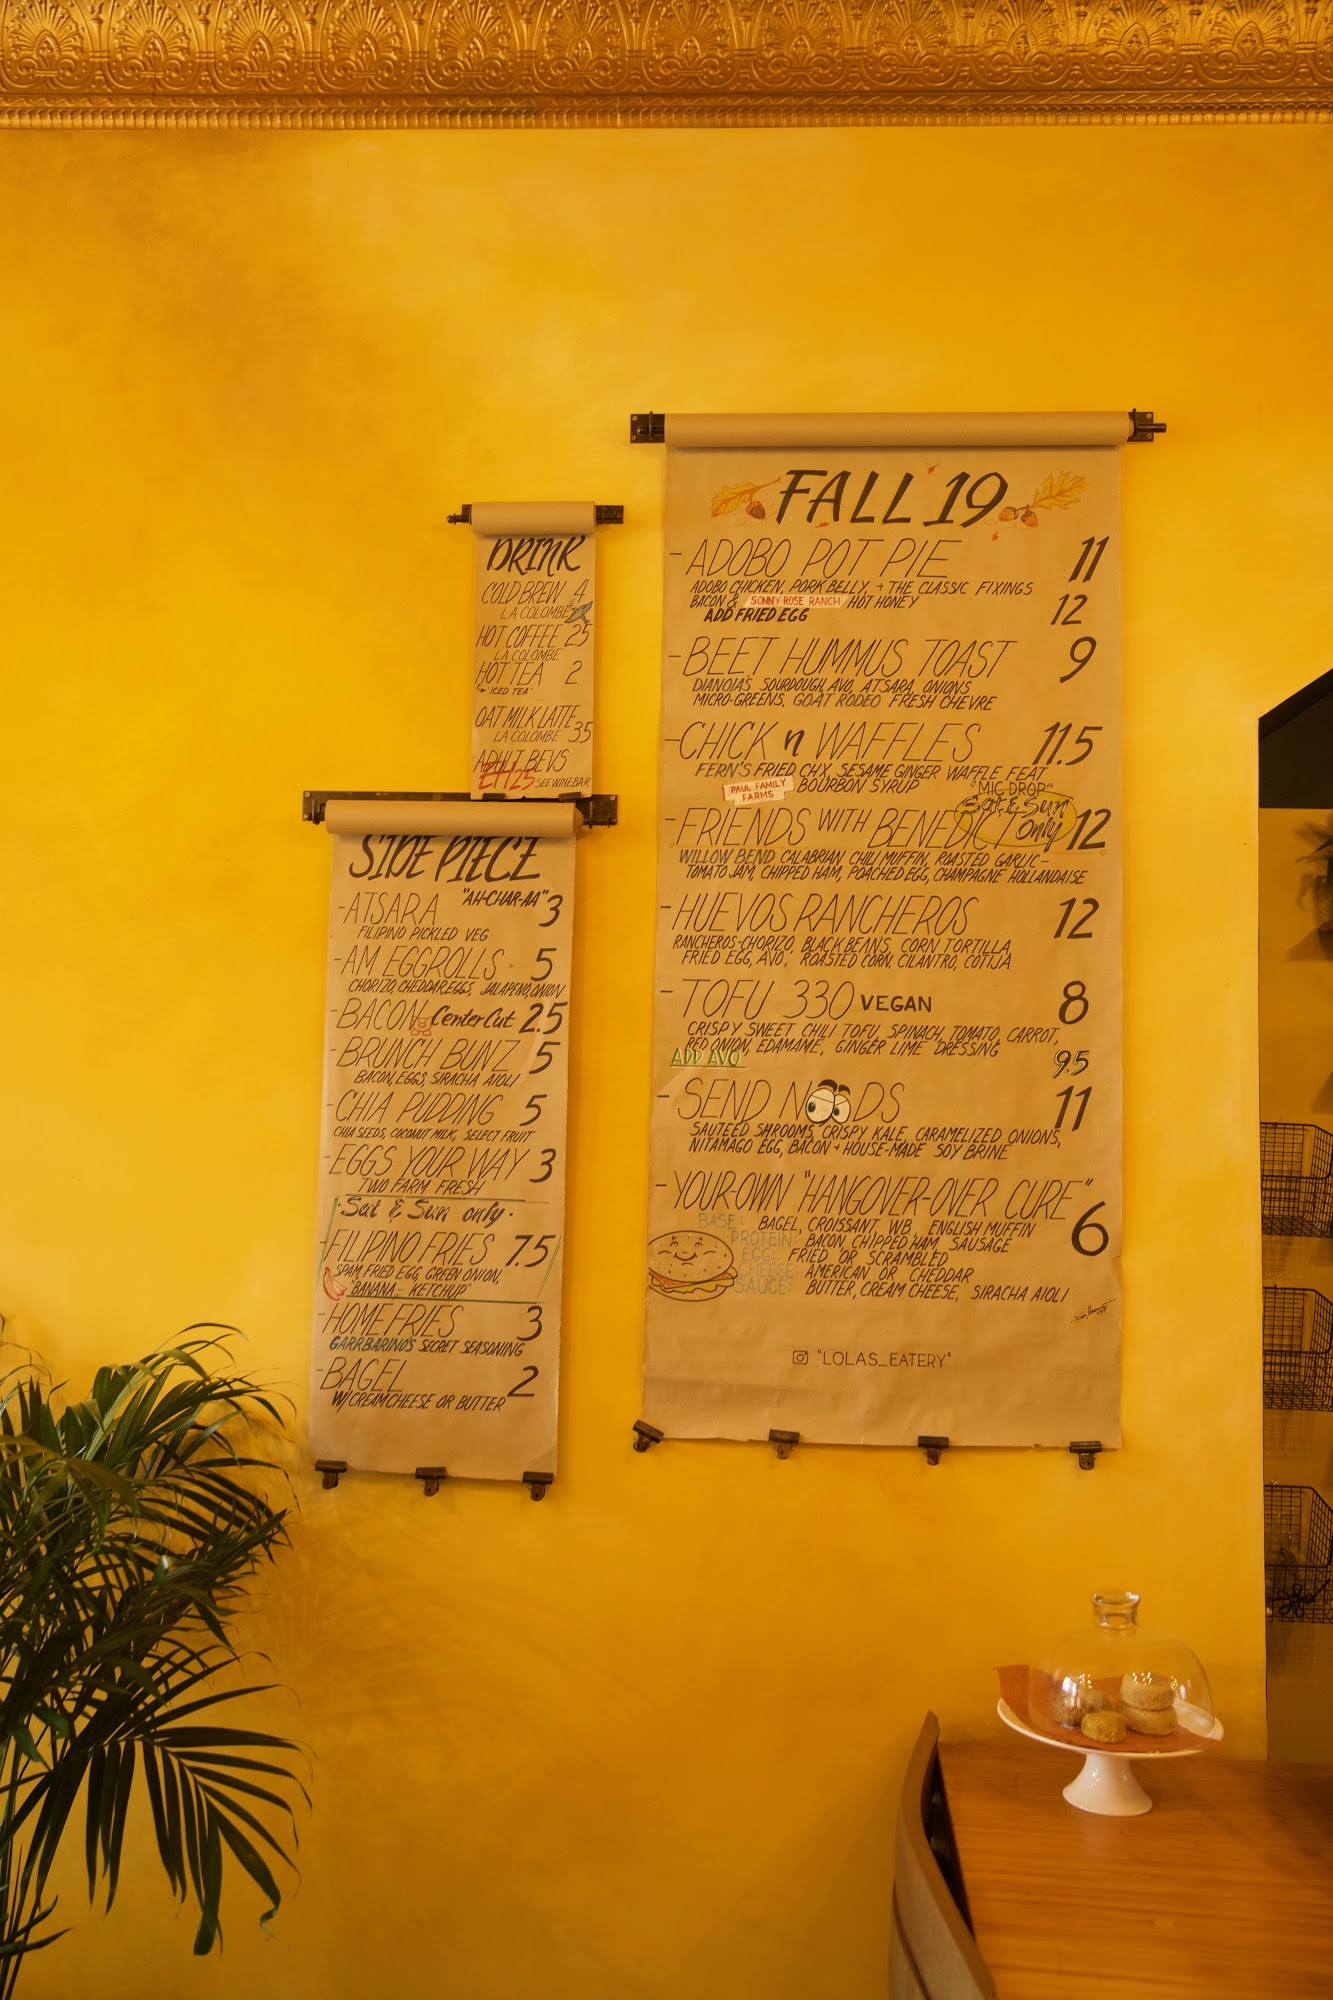 DRINK
COLD BREW 4
LA COLOMBE
HOT COFFEE 25
LA COLOMBE
HOT TEA 2
"ICED TEA"
OAT MILK LATTE
LA COLOMBE 3.5
ADULT BEVS
SEE WINE BAR
SIDE PIECE
"AH-CHAR-AA"
-ATSARA 3
FILIPINO PICKLED VEG
-AM EGGROLLS 5
CHORIZO, CHEDDAR, EGGS, JALAPENO, ONION
-BACON Center Cut 2.5
-BRUNCH BUNZ 5
BACON, EGGS, SIRACHA AIOLI
-CHIA PUDDING 5
CHIA SEEDS, COCONUT MILK, SELECT FRUIT
-EGGS YOUR WAY 3
TWO FARM FRESH
·Sat & Sun only·
-FILIPINO FRIES 7.5
SPAM, FRIED EGG, GREEN ONION,
"BANANA - KETCHUP"
-HOME FRIES 3
GARRBARINO'S SECRET SEASONING
-BAGEL 2
W/ CREAMCHEESE OR BUTTER
FALL '19
-ADOBO POT PIE 11
ADOBO CHICKEN, PORK BELLY, + THE CLASSIC FIXINGS
BACON & SONNY ROSE RANCH HOT HONEY 12
ADD FRIED EGG
-BEET HUMMUS TOAST 9
DIANOIA'S SOURDOUGH, AVO, ATSARA, ONIONS
MICRO-GREENS, GOAT RODEO FRESH CHEVRE
-CHICK n WAFFLES 11.5
FERN'S FRIED CHX, SESAME GINGER WAFFLE FEAT
PAUL FAMILY FARMS BOURBON SYRUP "MIC DROP"
Sat & Sun only
-FRIENDS WITH BENEDICT 12
WILLOW BEND CALABRIAN CHILI MUFFIN, ROASTED GARLIC-
TOMATO JAM, CHIPPED HAM, POACHED EGG, CHAMPAGNE HOLLANDAISE
-HUEVOS RANCHEROS 12
RANCHEROS-CHORIZO, BLACK BEANS, CORN TORTILLA,
FRIED EGG, AVO, ROASTED CORN, CILANTRO, COTIJA
-TOFU 330 VEGAN 8
CRISPY SWEET CHILI TOFU, SPINACH, TOMATO, CARROT,
RED ONION, EDAMAME, GINGER LIME DRESSING
ADD AVO 9.5
-SEND NOODS 11
SAUTEED SHROOMS, CRISPY KALE, CARAMELIZED ONIONS,
NITAMAGO EGG, BACON + HOUSE-MADE SOY BRINE
-YOUR-OWN "HANGOVER-OVER CURE" 6
BASE: BAGEL, CROISSANT, WB, ENGLISH MUFFIN
PROTEIN: BACON, CHIPPED HAM, SAUSAGE
EGG: FRIED OR SCRAMBLED
CHEESE: AMERICAN OR CHEDDAR
SAUCE: BUTTER, CREAM CHEESE, SIRACHA AIOLI
"LOLAS_EATERY"